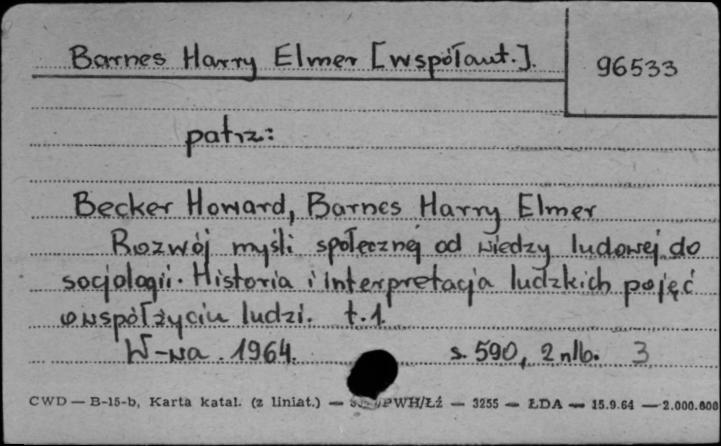 Barnes Harry Elmer [współaut.].
96533
patrz:
Becker Howard, Barnes Harry Elmer
Rozwój myśli społecznej od wiedzy ludowej do
socjologii. Historia i interpretacja ludzkich pojęć
o współżyciu ludzi. t.1.
W-wa. 1964. s. 590, 2 nlb. 3
CWD — B-15-b, Karta katal. (z liniat.) — PWH/Łź — 3255 — ŁDA — 15.9.64 — 2.000.000